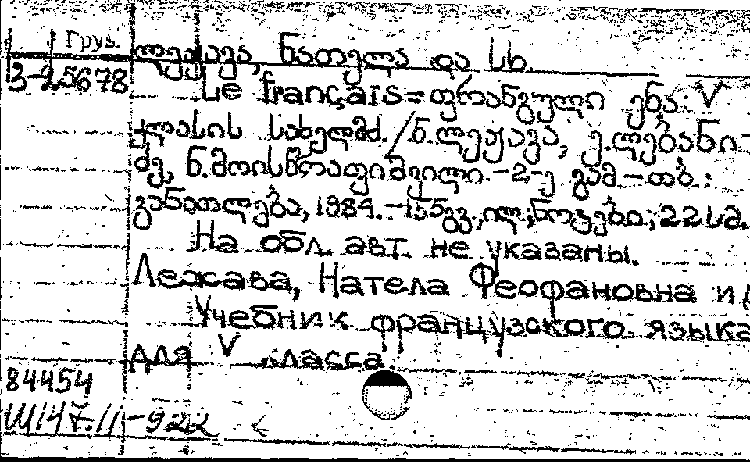 Груз.
ლეჟავა, ნათელა და სხ.
3-25678
Le français = ფრანგული ენა: V
კლასის სახელმძ. / ნ. ლეჟავა, ე. ლებანი-
ძე, ნ. მოისწრაფიშვილი. - 2-ე გამ. - თბ.:
განათლება, 1984. - 155 გვ., ილ., ნოტები; 22 სმ.
На обл. авт. не указаны.
Лежава, Натела Феофановна и
Учебник французского языка
для V класса.
84454
Ш147.11-922